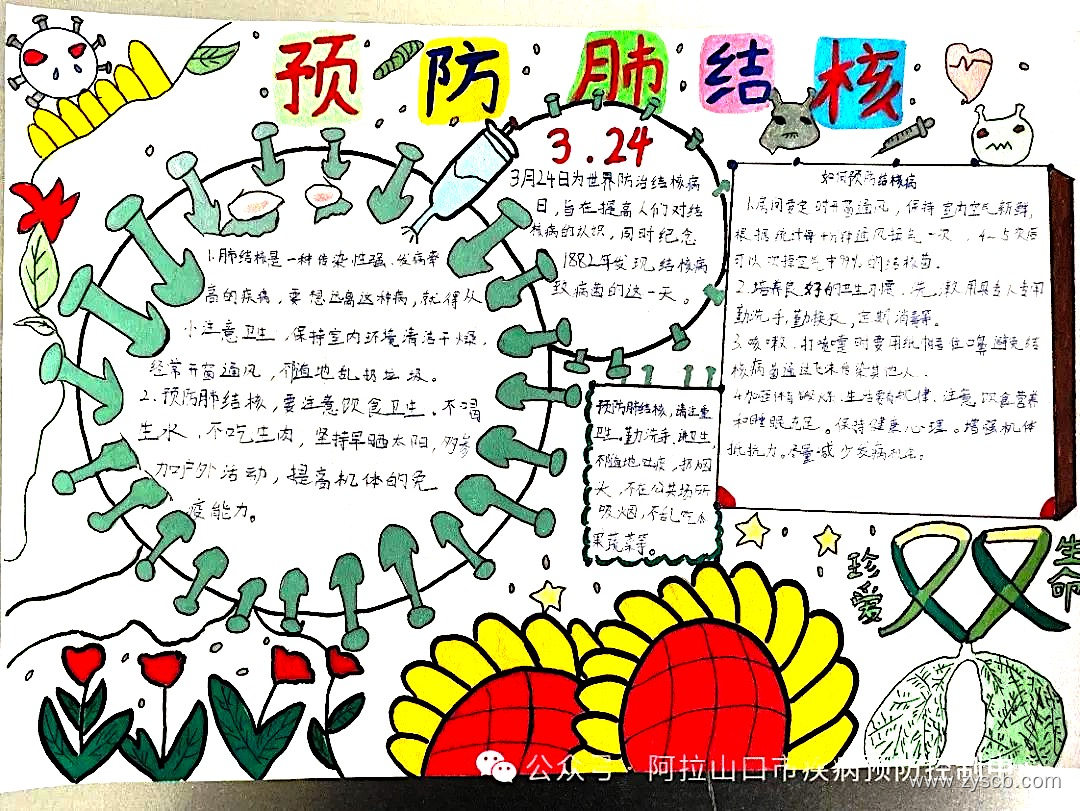 预防肺结核
3.24
3月24日为世界防治结核病
日，旨在提高人们对结
核病的认识，同时纪念
1882年发现结核病
致病菌的这一天。
1.肺结核是一种传染性强、发病率
高的疾病，要想远离这种病，就得从
小注意卫生，保持室内环境清洁干燥，
经常开窗通风，不随地乱扔垃圾。
2.预防肺结核，要注意饮食卫生。不喝
生水，不吃生肉，坚持早晒太阳，多参
加户外活动，提高机体的免
疫能力。
预防肺结核，请注意
卫生。勤洗手、讲卫生，
不随地吐痰，扔烟
头，不在公共场所
吸烟，不乱吃水
果蔬菜等。
如何预防结核病
1.房间要定时开窗通风，保持室内空气新鲜，
可以
2.培养良好的卫生习惯，
勤洗手，勤换衣，定期消毒等。
3.咳嗽、打喷嚏时要用纸帕捂住口鼻避免结
核病菌通过飞沫传染其他人。
生活要有规律，注意饮食营养
和睡眠充足。保持健康心理。增强机体
抵抗力。尽量减少发病机会。
珍爱
生命
公众号·阿拉山口市疾病预防控制中
www.zyscb.com